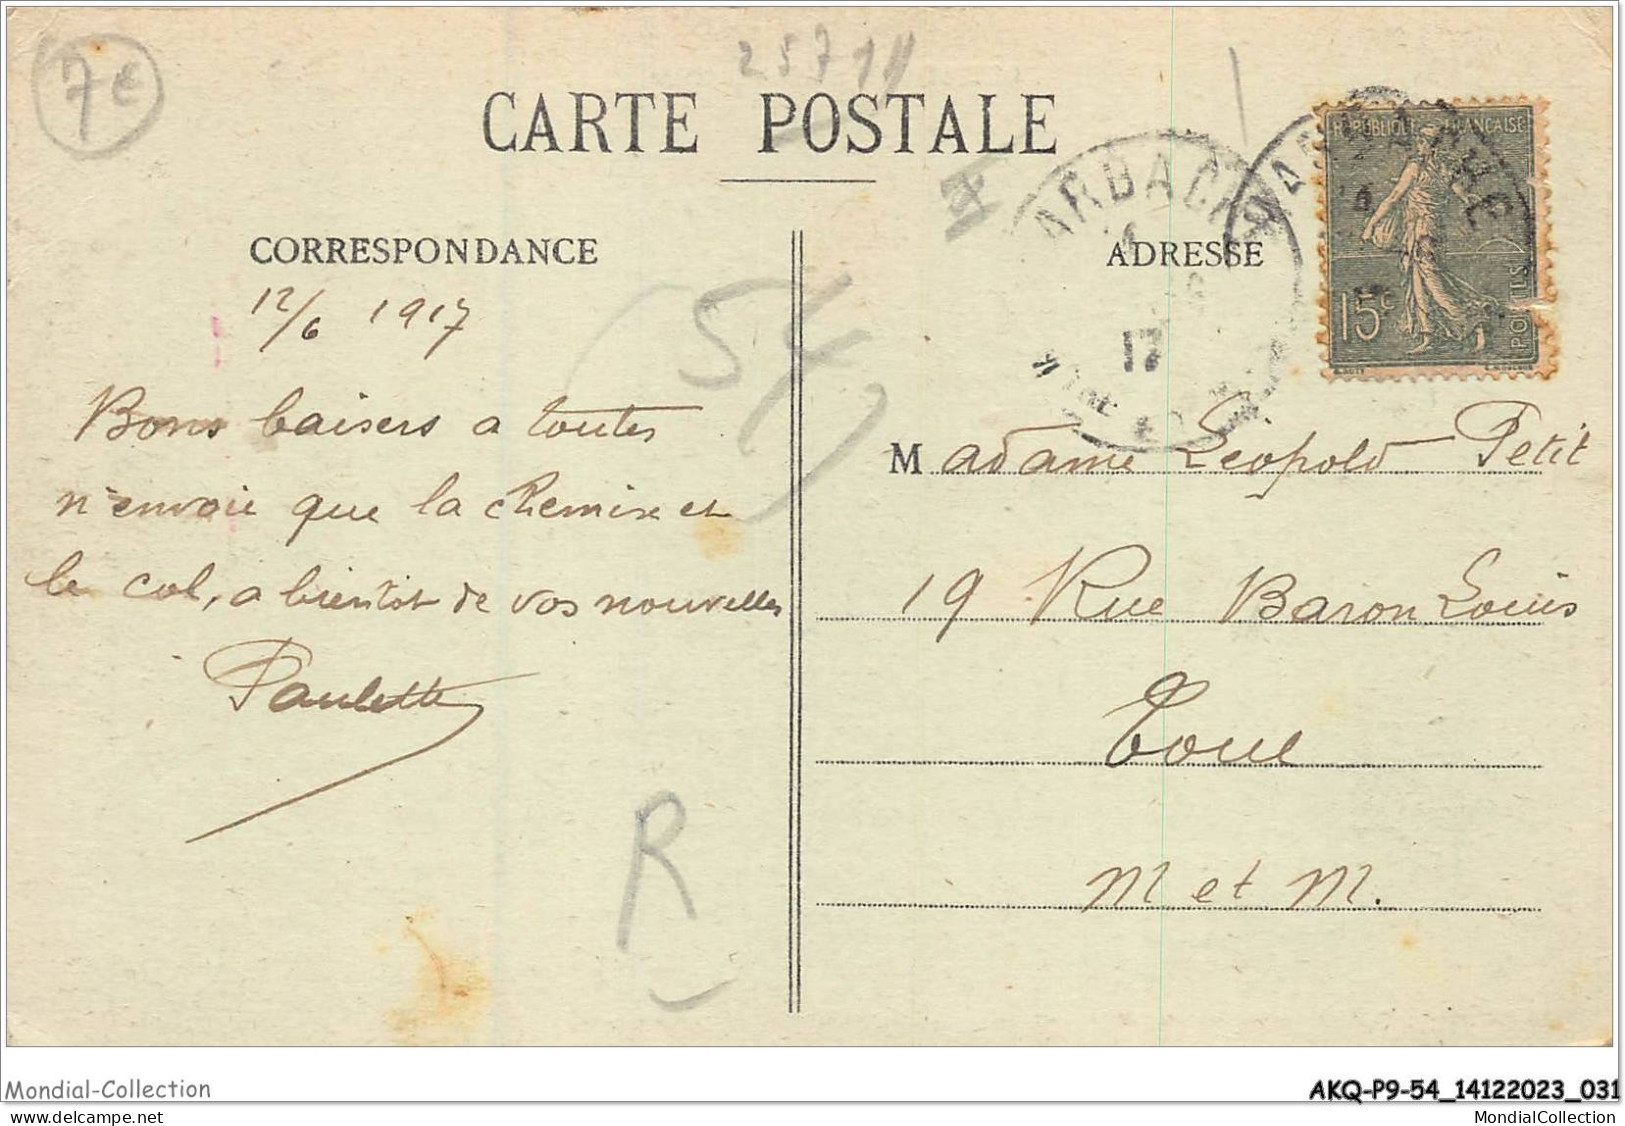 7€
25714
CARTE POSTALE
CORRESPONDANCE
12/6 1917
Bons baisers a toutes
n'envoie que la chemise et
le col, a bientôt de vos nouvelles
Paulette
54
R
ADRESSE
ARBACHE
17
REPUBLIQUE FRANÇAISE
15c
POSTES
Madame Léopold Petit
19 Rue Baron Louis
Toul
M et M.
Mondial-Collection
AKQ-P9-54_14122023_031
MondialCollection
MondialCollection